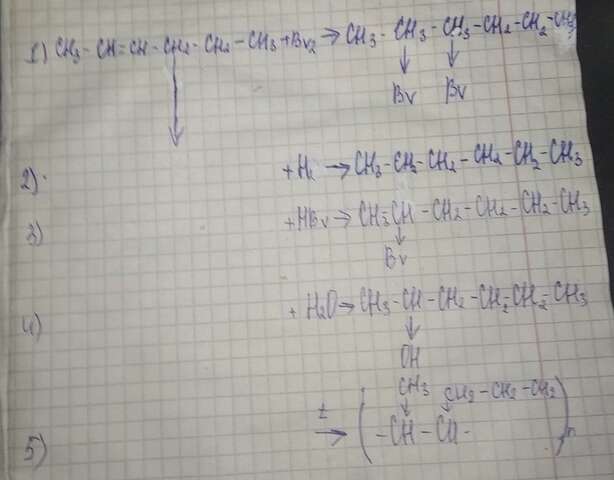 1) CH₃-CH=CH-CH₂-CH₂-CH₃+Br₂→CH₃-CH₃-CH₃-CH₂-CH₂-CH₃
Br Br
2) +H₂→CH₃-CH₂-CH₂-CH₂-CH₂-CH₃
3) +HBr→CH₃CH-CH₂-CH₂-CH₂-CH₃
Br
4) +H₂O→CH₃-CH-CH₂-CH₂CH₂-CH₃
OH
CH₃ CH₂-CH₂-CH₂
5) t→(-CH-CH-)n